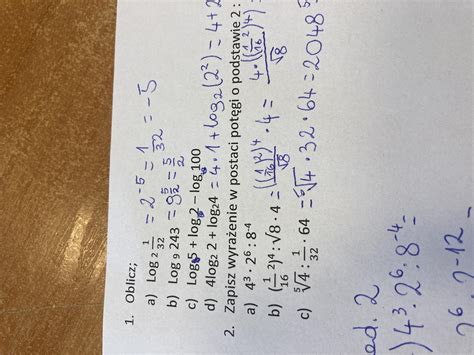 1. Oblicz;
a) Log 2 1/32 = 2^-5 = 1/32 = -5
b) Log 9 243 = 9^5/2 = 5/2
c) Log 5 + log 2 – log 100
d) 4log2 2 + log24 = 4·1 + log2(2^2) = 4+2
2. Zapisz wyrażenie w postaci potęgi o podstawie 2 :
a) 4^3 · 2^6 : 8^-4
b) (1/16 ^2)^4 : √8 · 4 = ((1/16)^2)^4/√8 · 4 = 4·((1/16 ^2)^4)/√8 =
c) ⁵√4 : 1/32 · 64 = ⁵√4 · 32 · 64 = 2048
ad. 2
) 4^3 · 2^6 : 8^-4
2^6 · 2^-12 -